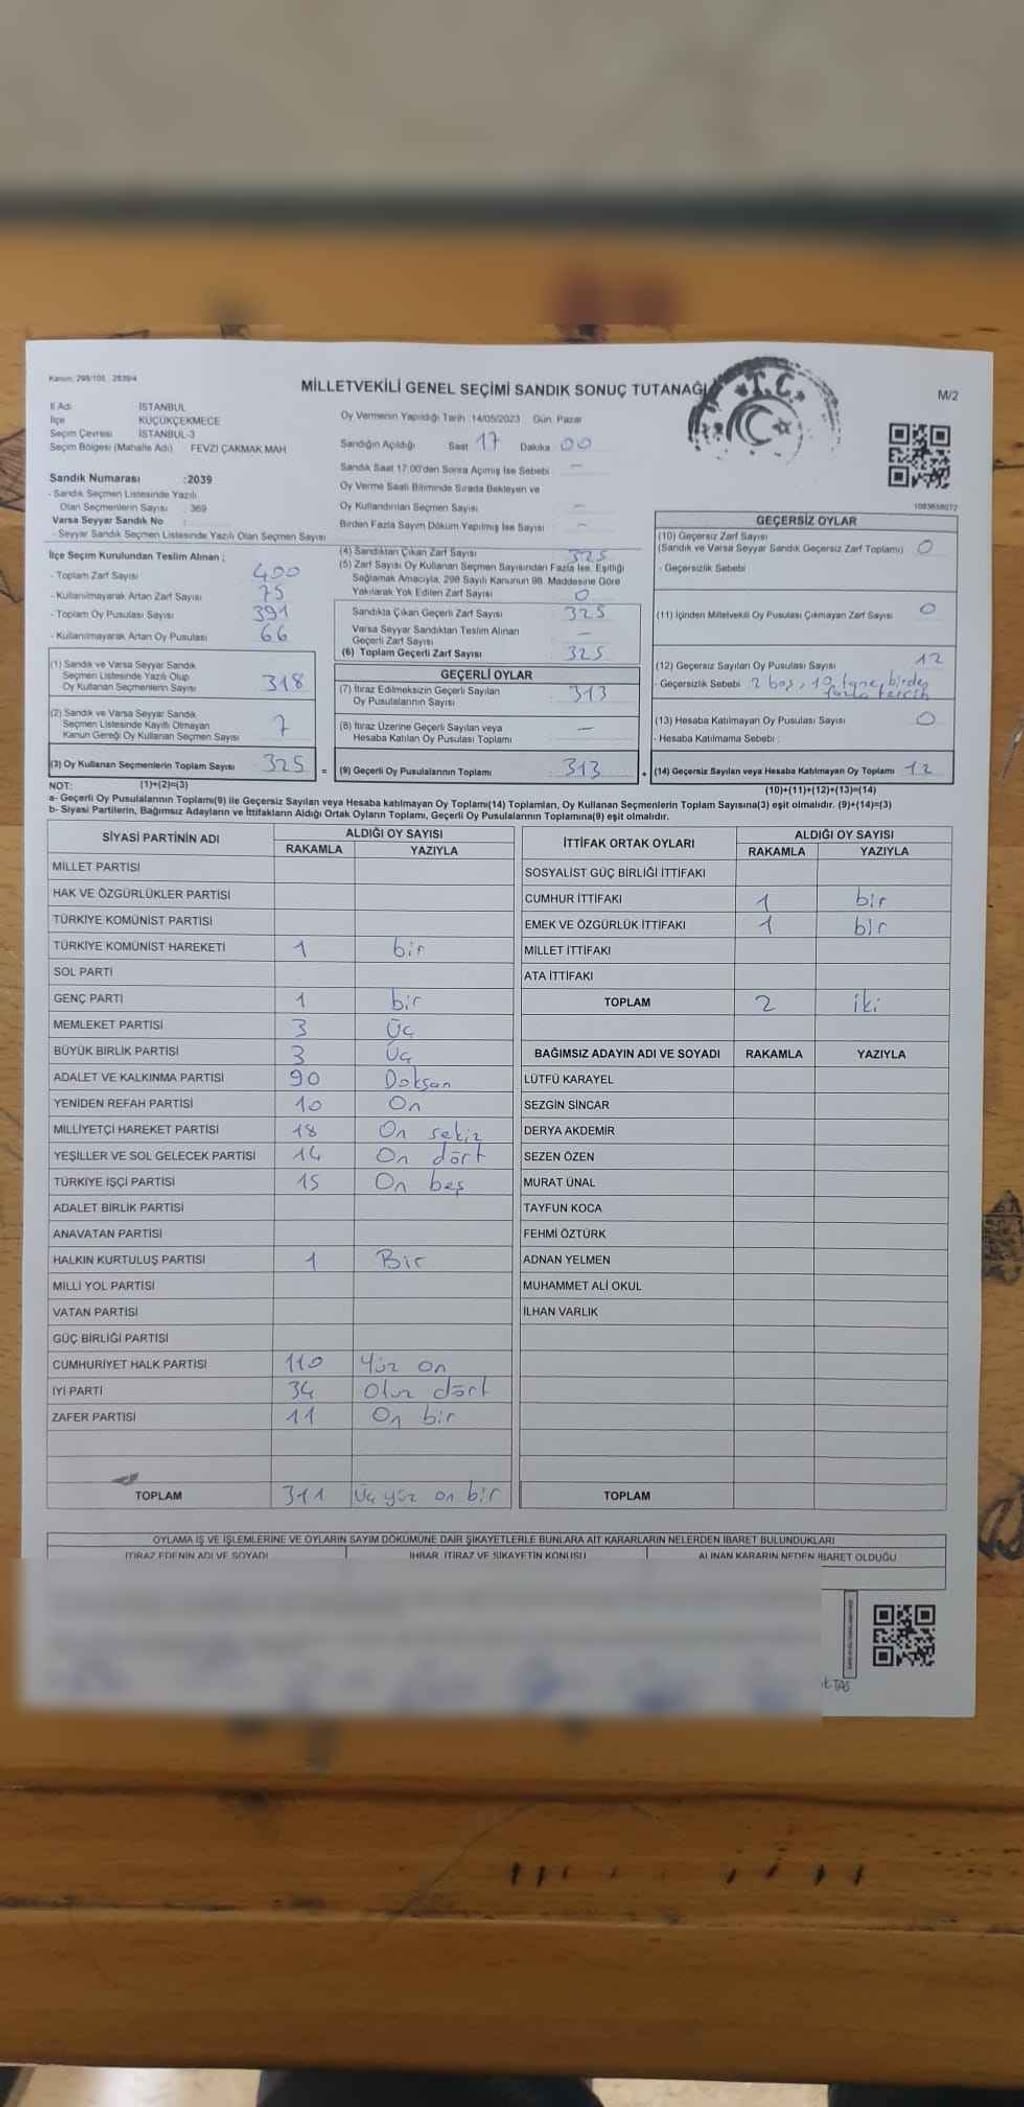 Kanun: 298/105, 2839/4
MİLLETVEKİLİ GENEL SEÇİMİ SANDIK SONUÇ TUTANAĞI
T.C.
M/2
İl Adı : İSTANBUL
İlçe : KÜÇÜKÇEKMECE
Seçim Çevresi : İSTANBUL-3
Seçim Bölgesi (Mahalle Adı) : FEVZİ ÇAKMAK MAH
Oy Vermenin Yapıldığı Tarih :14/05/2023 Gün: Pazar
Sandığın Açıldığı Saat 17 Dakika 00
Sandık Saat 17:00'den Sonra Açılmış İse Sebebi : —
Oy Verme Saati Bitiminde Sırada Bekleyen ve
Oy Kullandırılan Seçmen Sayısı : —
Birden Fazla Sayım Döküm Yapılmış İse Sayısı : —
Sandık Numarası :2039
- Sandık Seçmen Listesinde Yazılı
Olan Seçmenlerin Sayısı : 369
Varsa Seyyar Sandık No :
- Seyyar Sandık Seçmen Listesinde Yazılı Olan Seçmen Sayısı
İlçe Seçim Kurulundan Teslim Alınan ;
- Toplam Zarf Sayısı 400
- Kullanılmayarak Artan Zarf Sayısı 75
- Toplam Oy Pusulası Sayısı 391
- Kullanılmayarak Artan Oy Pusulası 66
(1) Sandık ve Varsa Seyyar Sandık
Seçmen Listesinde Yazılı Olup
Oy Kullanan Seçmenlerin Sayısı 318
(2) Sandık ve Varsa Seyyar Sandık
Seçmen Listesinde Kayıtlı Olmayan
Kanun Gereği Oy Kullanan Seçmen Sayısı 7
(3) Oy Kullanan Seçmenlerin Toplam Sayısı 325
(1)+(2)=(3)
(4) Sandıktan Çıkan Zarf Sayısı 325
(5) Zarf Sayısı Oy Kullanan Seçmen Sayısından Fazla İse, Eşitliği
Sağlamak Amacıyla, 298 Sayılı Kanunun 98. Maddesine Göre
Yakılarak Yok Edilen Zarf Sayısı 0
Sandıkta Çıkan Geçerli Zarf Sayısı 325
Varsa Seyyar Sandıktan Teslim Alınan
Geçerli Zarf Sayısı —
(6) Toplam Geçerli Zarf Sayısı 325
GEÇERLİ OYLAR
(7) İtiraz Edilmeksizin Geçerli Sayılan
Oy Pusulalarının Sayısı 313
(8) İtiraz Üzerine Geçerli Sayılan veya
Hesaba Katılan Oy Pusulası Toplamı —
= (9) Geçerli Oy Pusulalarının Toplamı 313
1083658072
GEÇERSİZ OYLAR
(10) Geçersiz Zarf Sayısı
(Sandık ve Varsa Seyyar Sandık Geçersiz Zarf Toplamı) 0
- Geçersizlik Sebebi
(11) İçinden Milletvekili Oy Pusulası Çıkmayan Zarf Sayısı 0
(12) Geçersiz Sayılan Oy Pusulası Sayısı 12
- Geçersizlik Sebebi 2 boş, 10 tane birden
fazla tercih
(13) Hesaba Katılmayan Oy Pusulası Sayısı 0
- Hesaba Katılmama Sebebi :
+ (14) Geçersiz Sayılan veya Hesaba Katılmayan Oy Toplamı 12
(10)+(11)+(12)+(13)=(14)
NOT:
a- Geçerli Oy Pusulalarının Toplamı(9) ile Geçersiz Sayılan veya Hesaba katılmayan Oy Toplamı(14) Toplamları, Oy Kullanan Seçmenlerin Toplam Sayısına(3) eşit olmalıdır. (9)+(14)=(3)
b- Siyasi Partilerin, Bağımsız Adayların ve İttifakların Aldığı Ortak Oyların Toplamı, Geçerli Oy Pusulalarının Toplamına(9) eşit olmalıdır.
SİYASİ PARTİNİN ADI ALDIĞI OY SAYISI
RAKAMLA YAZIYLA
MİLLET PARTİSİ
HAK VE ÖZGÜRLÜKLER PARTİSİ
TÜRKİYE KOMÜNİST PARTİSİ
TÜRKİYE KOMÜNİST HAREKETİ 1 bir
SOL PARTİ
GENÇ PARTİ 1 bir
MEMLEKET PARTİSİ 3 Üç
BÜYÜK BİRLİK PARTİSİ 3 Üç
ADALET VE KALKINMA PARTİSİ 90 Doksan
YENİDEN REFAH PARTİSİ 10 On
MİLLİYETÇİ HAREKET PARTİSİ 18 On sekiz
YEŞİLLER VE SOL GELECEK PARTİSİ 14 On dört
TÜRKİYE İŞÇİ PARTİSİ 15 On beş
ADALET BİRLİK PARTİSİ
ANAVATAN PARTİSİ
HALKIN KURTULUŞ PARTİSİ 1 Bir
MİLLİ YOL PARTİSİ
VATAN PARTİSİ
GÜÇ BİRLİĞİ PARTİSİ
CUMHURİYET HALK PARTİSİ 110 Yüz on
İYİ PARTİ 34 Otuz dört
ZAFER PARTİSİ 11 On bir
TOPLAM 311 Üç yüz on bir
İTTİFAK ORTAK OYLARI ALDIĞI OY SAYISI
RAKAMLA YAZIYLA
SOSYALİST GÜÇ BİRLİĞİ İTTİFAKI
CUMHUR İTTİFAKI 1 bir
EMEK VE ÖZGÜRLÜK İTTİFAKI 1 bir
MİLLET İTTİFAKI
ATA İTTİFAKI
TOPLAM 2 iki
BAĞIMSIZ ADAYIN ADI VE SOYADI RAKAMLA YAZIYLA
LÜTFÜ KARAYEL
SEZGİN SİNCAR
DERYA AKDEMİR
SEZEN ÖZEN
MURAT ÜNAL
TAYFUN KOCA
FEHMİ ÖZTÜRK
ADNAN YELMEN
MUHAMMET ALİ OKUL
İLHAN VARLIK
TOPLAM
OYLAMA İŞ VE İŞLEMLERİNE VE OYLARIN SAYIM DÖKÜMÜNE DAİR ŞİKAYETLERLE BUNLARA AİT KARARLARIN NELERDEN İBARET BULUNDUKLARI
İTİRAZ EDENİN ADI VE SOYADI İHBAR, İTİRAZ VE ŞİKAYETİN KONUSU ALINAN KARARIN NEDEN İBARET OLDUĞU